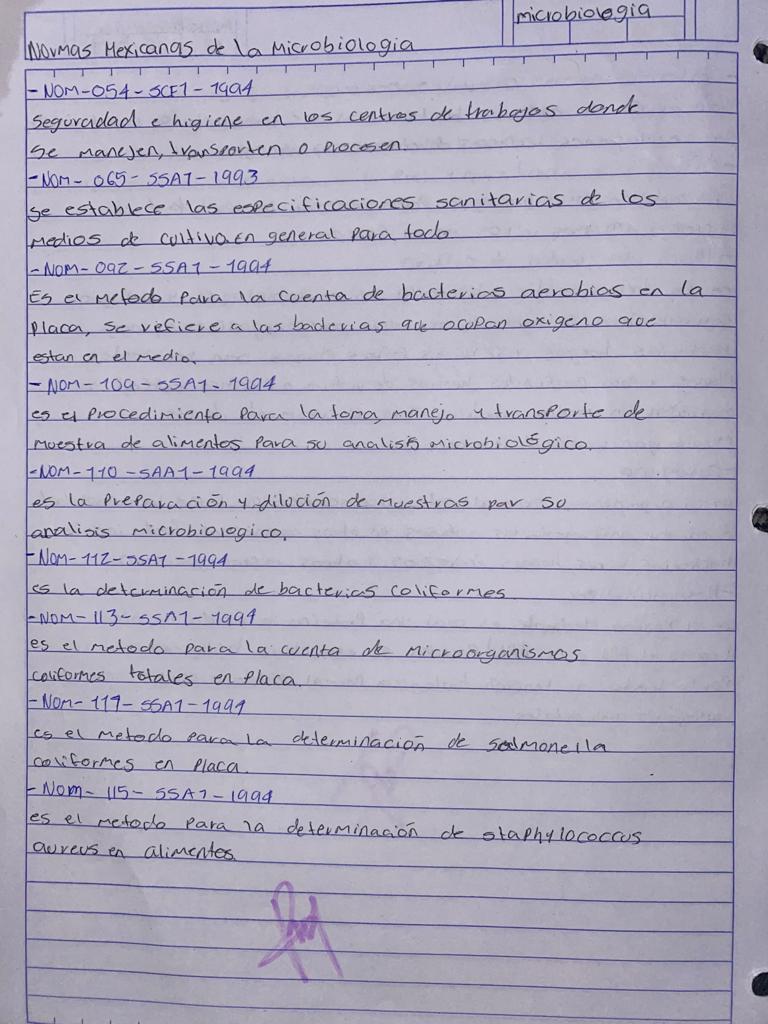 microbiologia
Normas Mexicanas de la Microbiologia
- NOM-054-SCF1-1994
Seguradad e higiene en los centros de trabajos donde
se manejen, transporten o procesen
- NOM-065-SSA1-1993
se establece las especificaciones sanitarias de los
medios de cultivo en general para todo
- NOM-092-SSA1-1994
Es el metodo para la cuenta de bacterias aerobias en la
placa, se refiere a las bacterias que ocupan oxigeno que
estan en el medio.
- NOM-109-SSA1-1994
es el procedimiento para la toma, manejo y transporte de
muestra de alimentos para su analisis microbiológico.
-NOM-110-SAA1-1994
es la preparación y dilución de muestras par su
analisis microbiologico.
- NOM-112-SSA1-1994
es la determinación de bacterias coliformes
- NOM-113-SSA1-1994
es el metodo para la cuenta de microorganismos
coliformes totales en placa.
- NOM-114-SSA1-1994
es el metodo para la determinación de Salmonella
coliformes en placa.
- NOM-115-SSA1-1994
es el metodo para la determinación de staphylococcus
aureus en alimentos